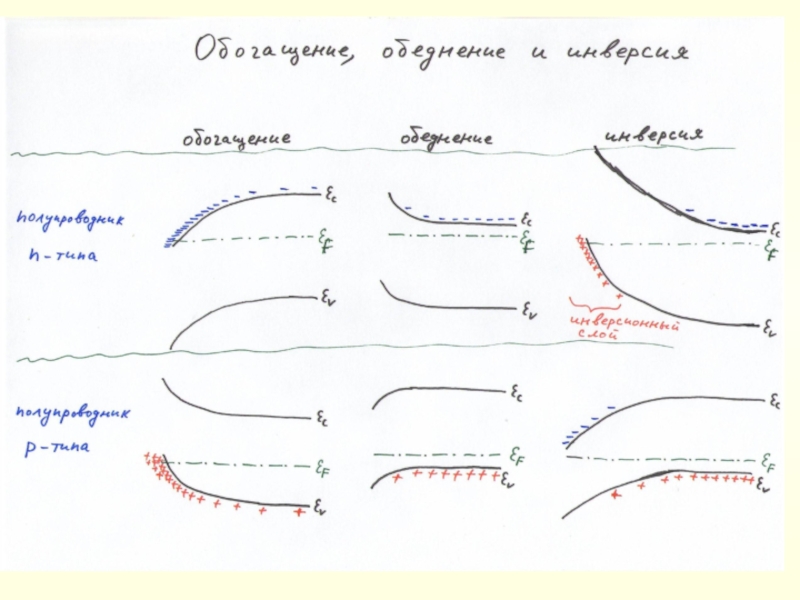 Обогащение, обеднение и инверсия
обогащение обеднение инверсия
полупроводник
n-типа
Ec
EF
Ev
Ec
EF
Ev
Ec
EF
Ev
инверсионный
слой
полупроводник
p-типа
Ec
EF
Ev
Ec
EF
Ev
Ec
EF
Ev